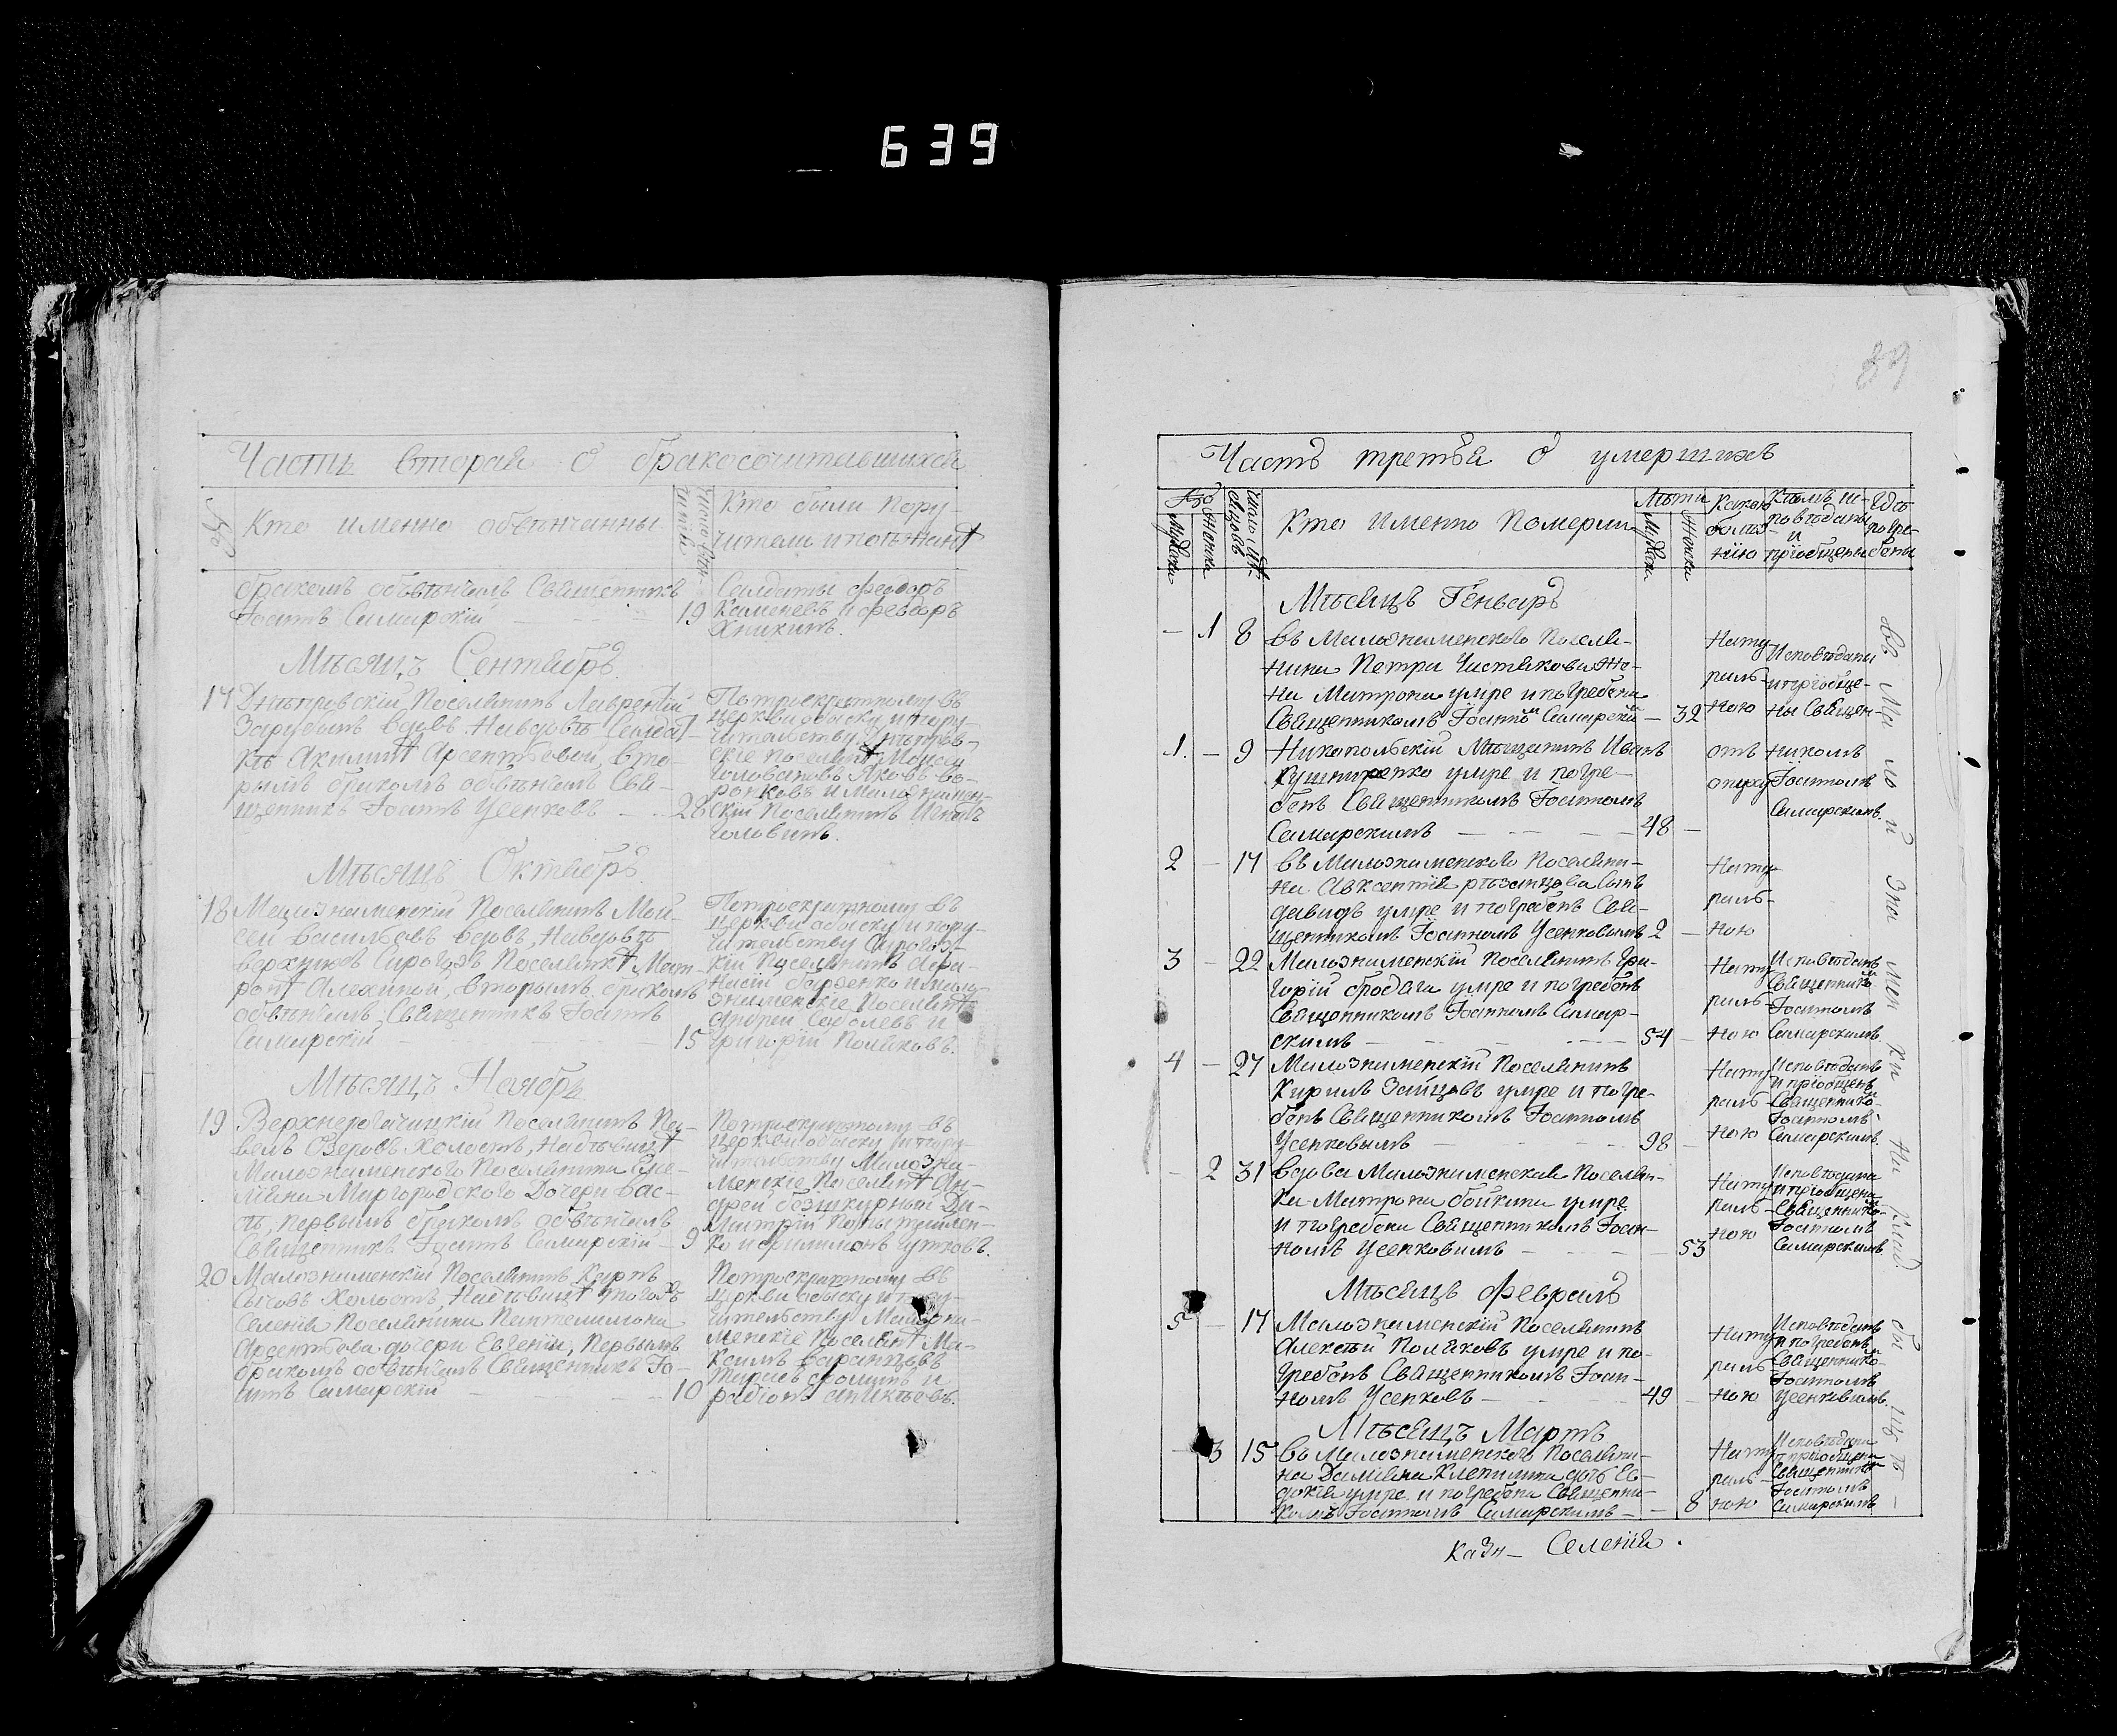 639
Часть вторая о бракосочитавшихся
№
Кто именно обвѣнчанны
Кто были пору-
чители и поѣзжанѣ
бракомъ обвѣнчалъ Священникъ
Іоаннъ Самарскій
19
Салдаты Феодоръ
Каменевъ и Феодоръ
Мѣсяцъ Сентябрь
17
Днѣпровскій Поселянинъ Лаврентій
Зарубинъ вдовъ на вдовѣ Солдат-
кѣ Акилинѣ Арсентьевой, вто-
рымъ бракомъ обвѣнчалъ Свя-
щенникъ Іоаннъ Усенковъ
28
По троекратному въ
церкви обыску и пору-
чительству Днѣпров-
скіе поселянѣ Моисей
Головановъ Яковъ Во-
ронковъ и Малознамен-
скій Поселянинъ
Головинъ.
Мѣсяцъ Октябрь
18
Малознаменскій Поселянинъ Мой-
сей Васильевъ вдовъ, на вдовѣ
верхнихъ Сирогозъ Поселянкѣ Мат-
ронѣ Алехиной, вторымъ бракомъ
обвѣнчалъ Священникъ Іоаннъ
Самарскій
15
По троекратному въ
церкви обыску и пору-
чительству Сирогоз-
кій Поселянинъ Афа-
насій Гордѣнко и Мало-
знаменскіе Поселянѣ
Андрей Соболевъ и
Григорій Поляковъ.
Мѣсяцъ Ноябрь
19
Верхнерогачицкій Поселянинъ Па-
велъ Озеровъ Холостъ, на дѣвицѣ
Малознаменского Поселянина Еме-
ліяна Миргородского Дочери Вас-
сѣ, первымъ бракомъ обвѣнчалъ
Священникъ Іоаннъ Самарскій
9
По троекратному въ
церкви обыску и пору-
чительству Малозна-
менскіе Поселянѣ Ан-
дрей Безшкурный Ди-
митрій
ко и Филимонъ Чутковъ.
20
Малознаменскій Поселянинъ Карпъ
Сычовъ Холостъ, на дѣвицѣ тогожъ
Селенія Поселянина Пантелимона
Арсентьева дочери Евгеніи, Первымъ
бракомъ обвѣнчалъ Священникъ Іо-
аннъ Самарскій
10
По троекратному въ
церкви обыску и пору-
чительству Малозна-
менскіе Поселянѣ Ма-
ксимъ Баранцовъ
Тарасъ Фоминъ и
Родіонъ Аникѣевъ.
89
Часть третья о умершихъ
№
Мужска
Женска
Число Мѣ-
сяцовъ
Кто Именно Померли
Лѣта
Мужска
Женска
Какою
болѣз-
нію
Кѣмъ ис-
повѣданы
и
пріобщены
Гдѣ
погре-
бены
Мѣсяцъ Генварь
— 1 8
въ Малознаменского Поселя-
нина Петра Чистякова Же-
на Матрона умре и погребена
Священникомъ Іоанномъ Самарскимъ — 32
Нату-
раль-
ною
Исповѣдана
и пріобще-
на Священ-
1. — 9
Никопольскій Мѣщанинъ Иванъ
Кушниренко умре и погре-
бенъ Священникомъ Іоанномъ
Самарскимъ — 48 —
отъ
опуху
никомъ
Іоанномъ
Самарскимъ.
2 — 17
въ Малознаменского Поселяни-
на Авксентія Рѣзанцова Сынъ
Давидъ умре и погребенъ Свя-
щенникомъ Іоанномъ Усенковымъ 2 —
Нату-
раль-
ною
3 — 22
Малознаменскій Поселянинъ Гри-
горій бродяга умре и погребенъ
Священникомъ Іоанномъ Самар-
скимъ — 54 —
Нату-
раль-
ною
Исповѣданъ
Священнико-
Іоанномъ
Самарскимъ
4 — 27
Малознаменскій Поселянинъ
Кирилъ Зайцовъ умре и погре-
бенъ Священникомъ Іоанномъ
Усенковымъ — 98 —
Нату-
раль-
ною
Исповѣданъ
и пріобщенъ
Священнико-
Іоанномъ
Самарскимъ.
— 2 31
вдова Малознаменская Поселян-
ка Матрона Бойкина умре
и погребена Священникомъ Іоан-
номъ Усенковымъ — 53
Нату-
раль-
ною
Исповѣдана
и пріобщена
Священнико-
Іоанномъ
Самарскимъ
Мѣсяцъ Февраль
5 — 17
Малознаменскій Поселянинъ
Алексѣй Поляковъ умре и по-
гребенъ Священникомъ Іоан-
номъ Усенковъ — 49 —
Нату-
раль-
ною
Исповѣданъ
и погребенъ
Священнико-
Іоанномъ
Усенковымъ.
Мѣсяцъ Мартъ
— 3 15
въ Малознаменского Поселяни-
на Даміяна Клепинина дочь Ев-
докія умре и погребена Священни-
комъ Іоанномъ Самарскимъ — 8
Нату-
раль-
ною
Исповѣдана
и пріобщена
Священникомъ
Іоанномъ
Самарскимъ
На Мало й Зна мен ки на клад би щѣ —
Казн — Селенія.